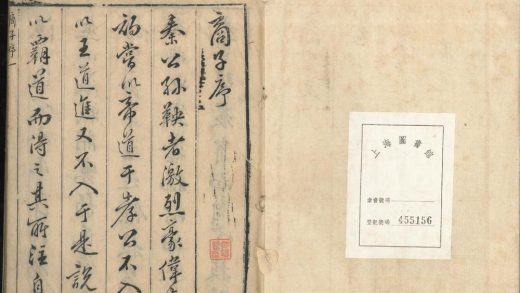 商子序
秦公孫鞅者激烈豪偉
初嘗以帝道干孝公不入
以王道進又不入于是說
以霸道而得之其所注自
商子序
上海圖書館
索書號碼
登記號碼 455156